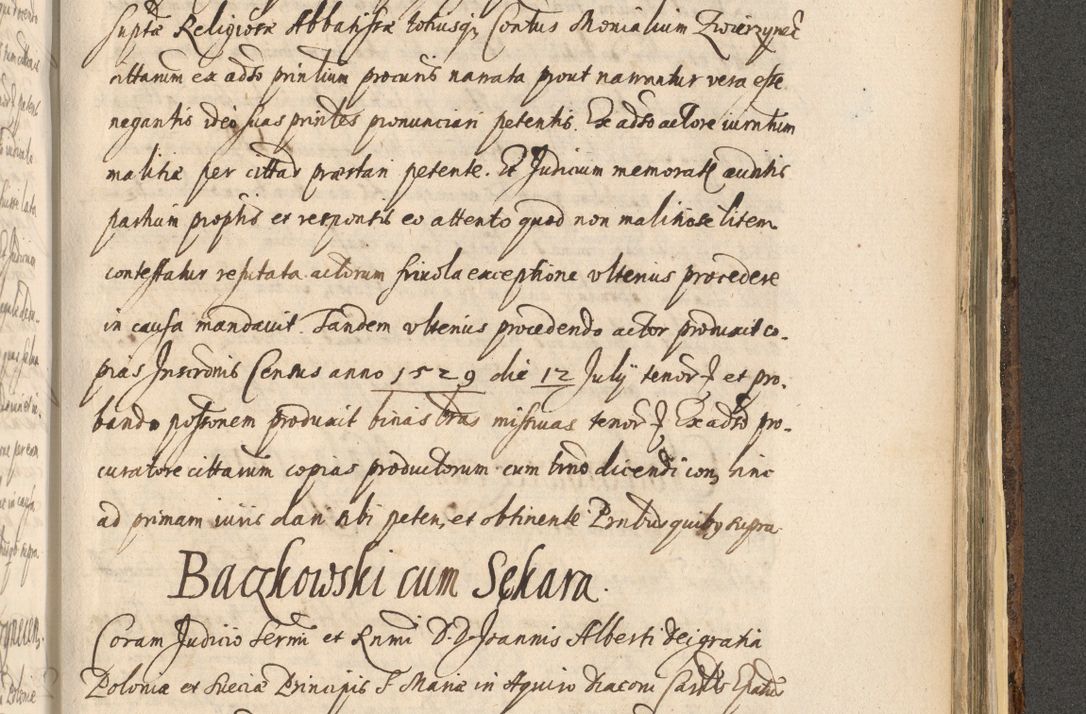 suptæ Religiosæ Abbatissæ totiusq Contus Monialium Zwierzynec
cittarum ex adso printium procuris narrata prout narrantur vera esse
negantis ideo suas printes pronunciari petentis. Ex adso actore iurntum
malitiæ per cittas præstari petente. Et Judicium memorate auditis
partium prophis et responsis eo attento quod non malitiose litem
contestatur refutata actorum friuola exceptione vlterius procedere
in causa mandauit. Tandem vlterius procedendo actor produxit co-
pias Inscronis Census anno 1529 die 12 Julij tenor et pro-
bando postonem produxit binas tras missiuas tenor Ex adso pro-
curatore cittarum copias productorum cum trno dicendi con hinc
ad primam iuris dari sibi peten, et obtinente Pntibus quibus supra
Baczkowski cum Sękara.
Coram Judicio Sermi et Rnmi D. D. Joannis Alberti Dei gratia
Poloniæ et Sueciæ Principis S. Mariæ in Aquiro Diaconi Cardlis Epatus